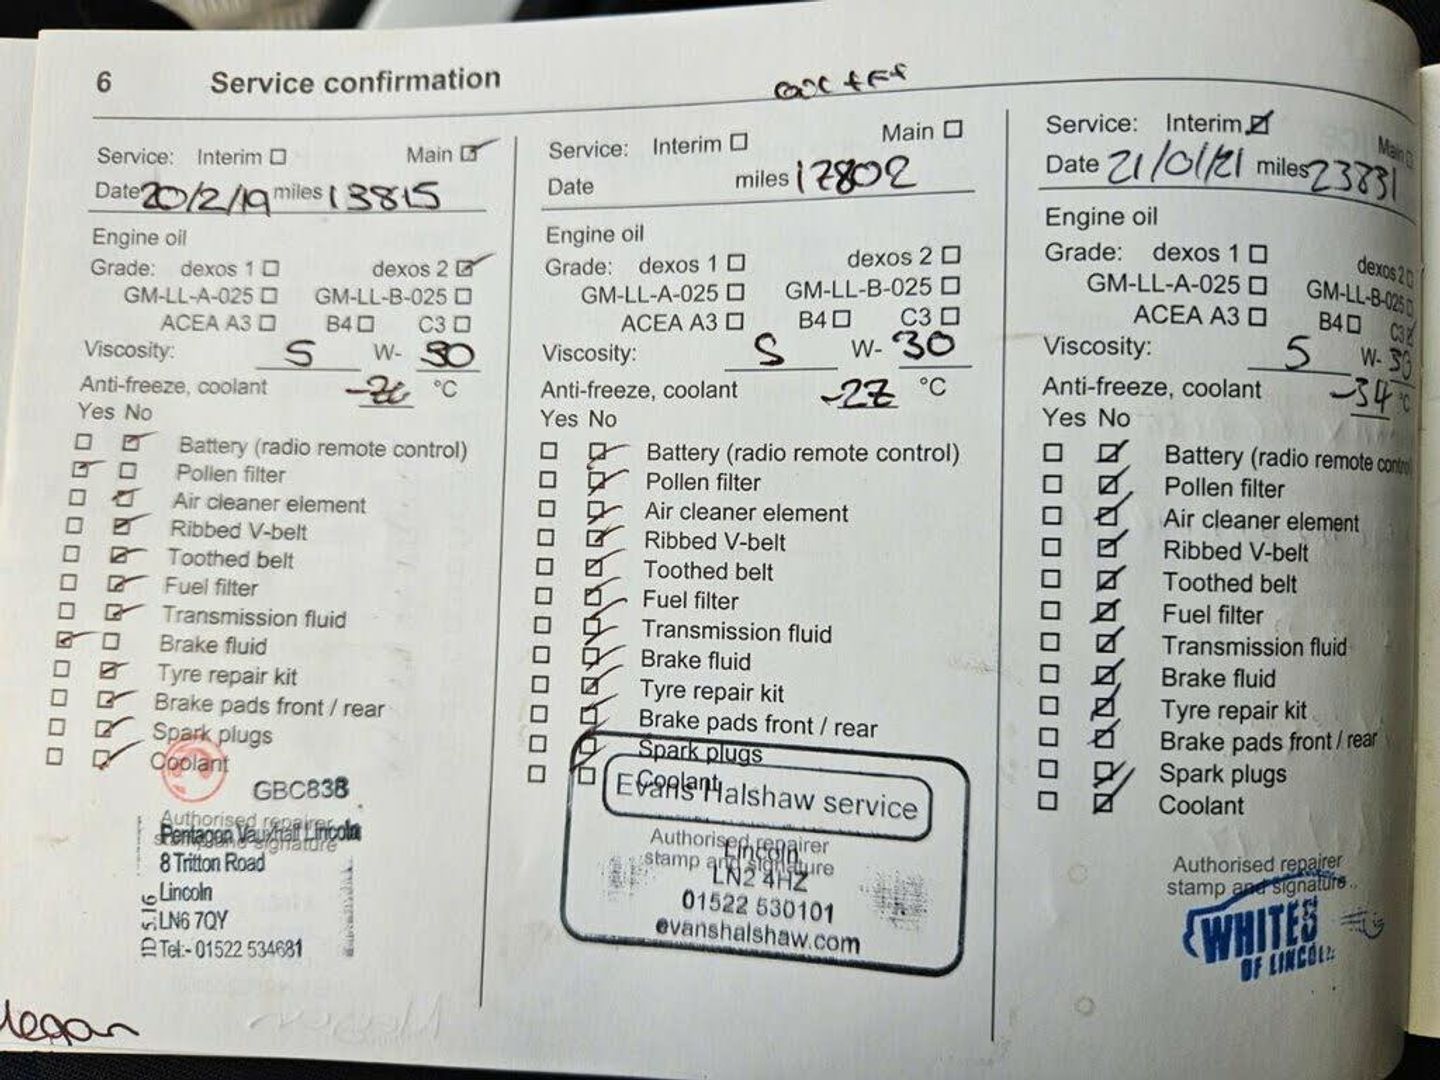 6 Service confirmation
Service: Interim ☐ Main ☑
Date 20/2/19 miles 13815
Engine oil
Grade: dexos 1 ☐ dexos 2 ☑
GM-LL-A-025 ☐ GM-LL-B-025 ☐
ACEA A3 ☐ B4 ☐ C3 ☐
Viscosity: 5 W- 30
Anti-freeze, coolant °C
Yes No
☐ ☑ Battery (radio remote control)
☑ ☐ Pollen filter
☐ ☑ Air cleaner element
☐ ☑ Ribbed V-belt
☐ ☑ Toothed belt
☐ ☑ Fuel filter
☐ ☑ Transmission fluid
☑ ☐ Brake fluid
☐ ☑ Tyre repair kit
☐ ☑ Brake pads front / rear
☐ ☑ Spark plugs
☐ ☑ Coolant
GBC838
Authorised repairer
stamp and signature
Pentagon Vauxhall Lincoln
8 Tritton Road
Lincoln
LN6 7QY
Tel:- 01522 534681
ID 5.16
Megan
Service: Interim ☐ Main ☐
Date miles 17802
Engine oil
Grade: dexos 1 ☐ dexos 2 ☐
GM-LL-A-025 ☐ GM-LL-B-025 ☐
ACEA A3 ☐ B4 ☐ C3 ☐
Viscosity: 5 W- 30
Anti-freeze, coolant -27 °C
Yes No
☐ ☑ Battery (radio remote control)
☐ ☑ Pollen filter
☐ ☑ Air cleaner element
☐ ☑ Ribbed V-belt
☐ ☑ Toothed belt
☐ ☑ Fuel filter
☐ ☑ Transmission fluid
☐ ☑ Brake fluid
☐ ☑ Tyre repair kit
☐ ☑ Brake pads front / rear
☐ ☑ Spark plugs
☐ ☐ Coolant
Evans Halshaw service
Authorised repairer
stamp and signature
Lincoln
LN2 4HZ
01522 530101
evanshalshaw.com
Service: Interim ☑ Main ☐
Date 21/01/21 miles 23831
Engine oil
Grade: dexos 1 ☐ dexos 2 ☐
GM-LL-A-025 ☐ GM-LL-B-025 ☐
ACEA A3 ☐ B4 ☐ C3 ☑
Viscosity: 5 W- 30
Anti-freeze, coolant -34 °C
Yes No
☐ ☑ Battery (radio remote control)
☐ ☑ Pollen filter
☐ ☑ Air cleaner element
☐ ☑ Ribbed V-belt
☐ ☑ Toothed belt
☐ ☑ Fuel filter
☐ ☑ Transmission fluid
☐ ☑ Brake fluid
☐ ☑ Tyre repair kit
☐ ☑ Brake pads front / rear
☐ ☑ Spark plugs
☐ ☑ Coolant
Authorised repairer
stamp and signature
WHITES
OF LINCOLN